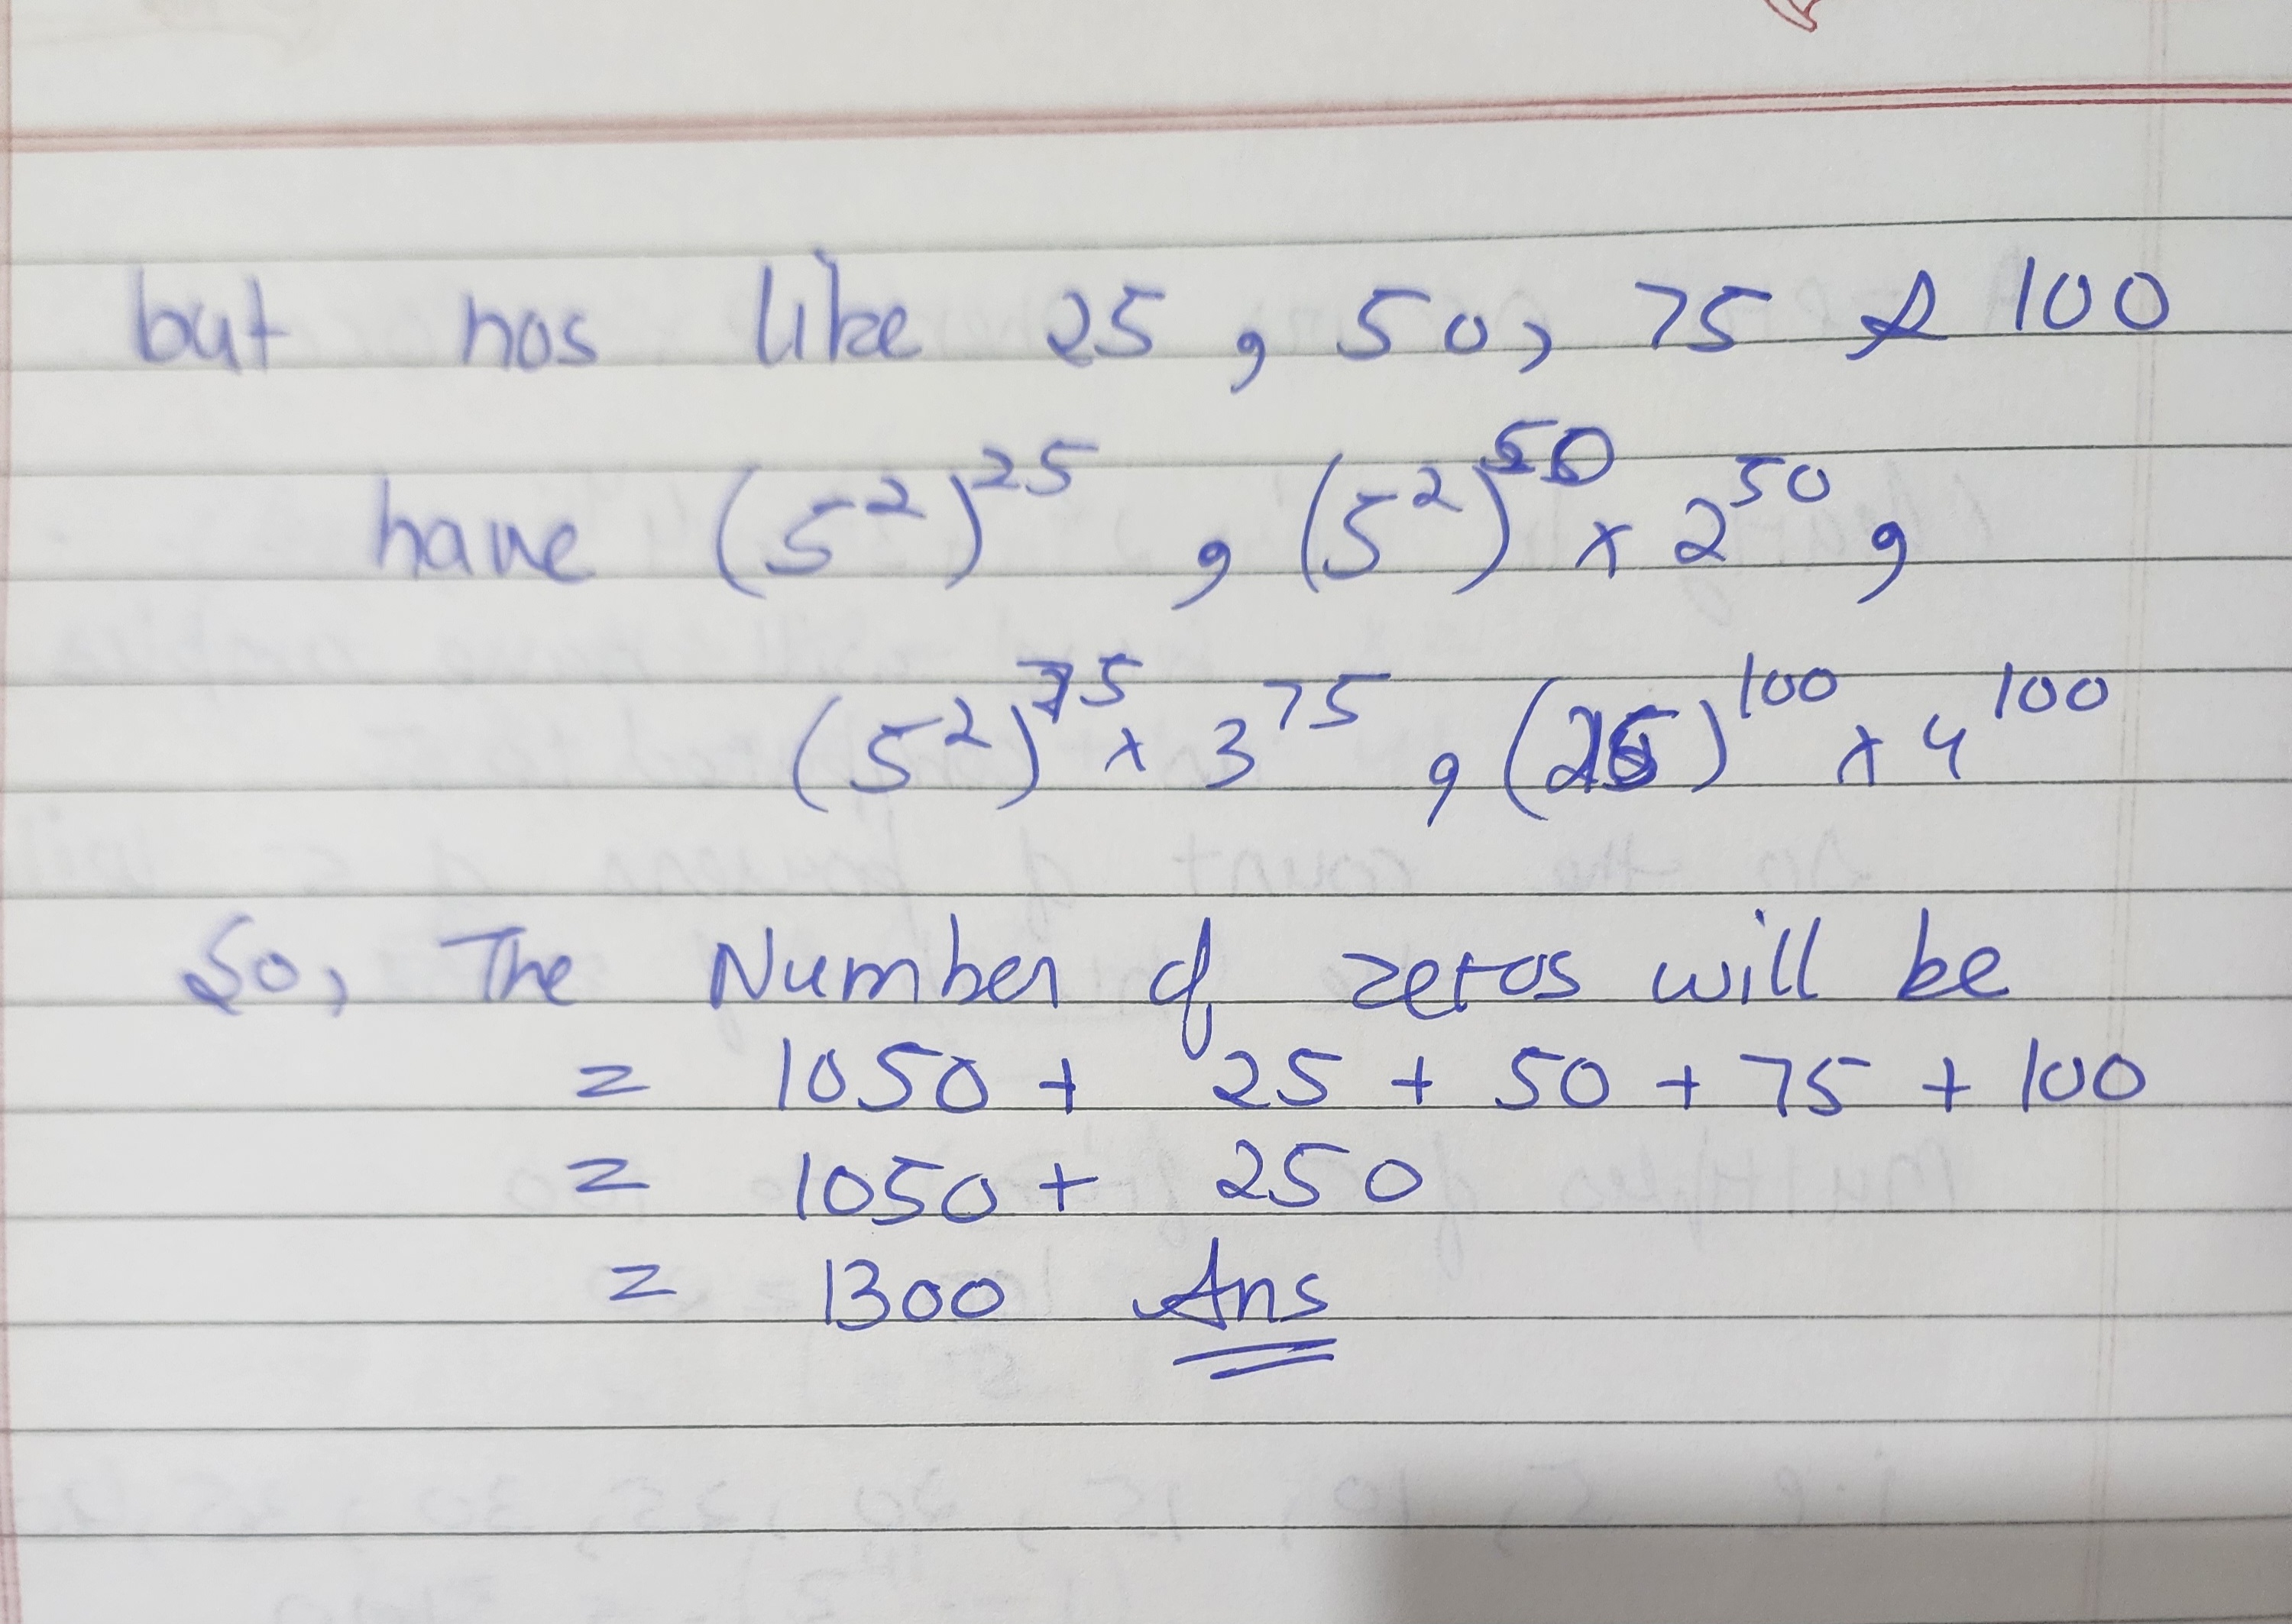 but nos like 25, 50, 75 & 100
have (5²)²⁵, (5²)⁵⁰ × 2⁵⁰,
(5²)⁷⁵ × 3⁷⁵, (25)¹⁰⁰ × 4¹⁰⁰
So, The Number of zeros will be
= 1050 + 25 + 50 + 75 + 100
= 1050 + 250
= 1300 Ans